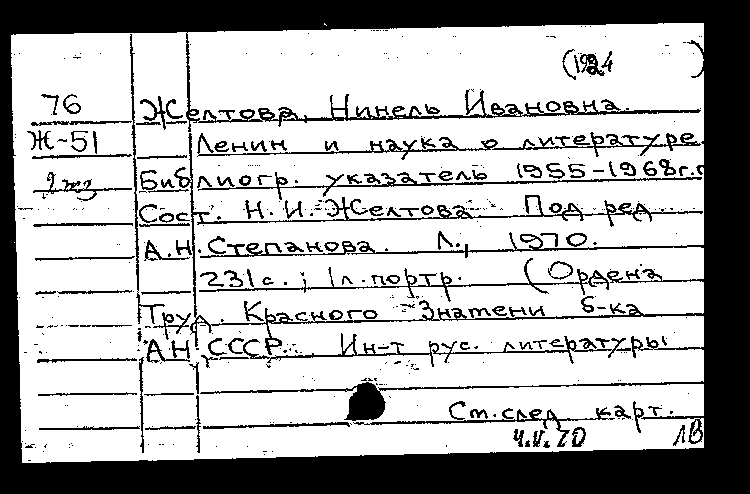 (1924 )
76 Желтова, Нинель Ивановна.
Ж-51 Ленин и наука о литературе.
2 экз Библиогр. указатель 1955-1968г.г
Сост. Н.И.Желтова. Под ред.
А.Н.Степанова. Л., 1970.
231с.; 1л.портр. (Ордена
Труд. Красного Знамени б-ка
АН СССР. Ин-т рус. литературы
См.след. карт.
4.V.70 ЛВ